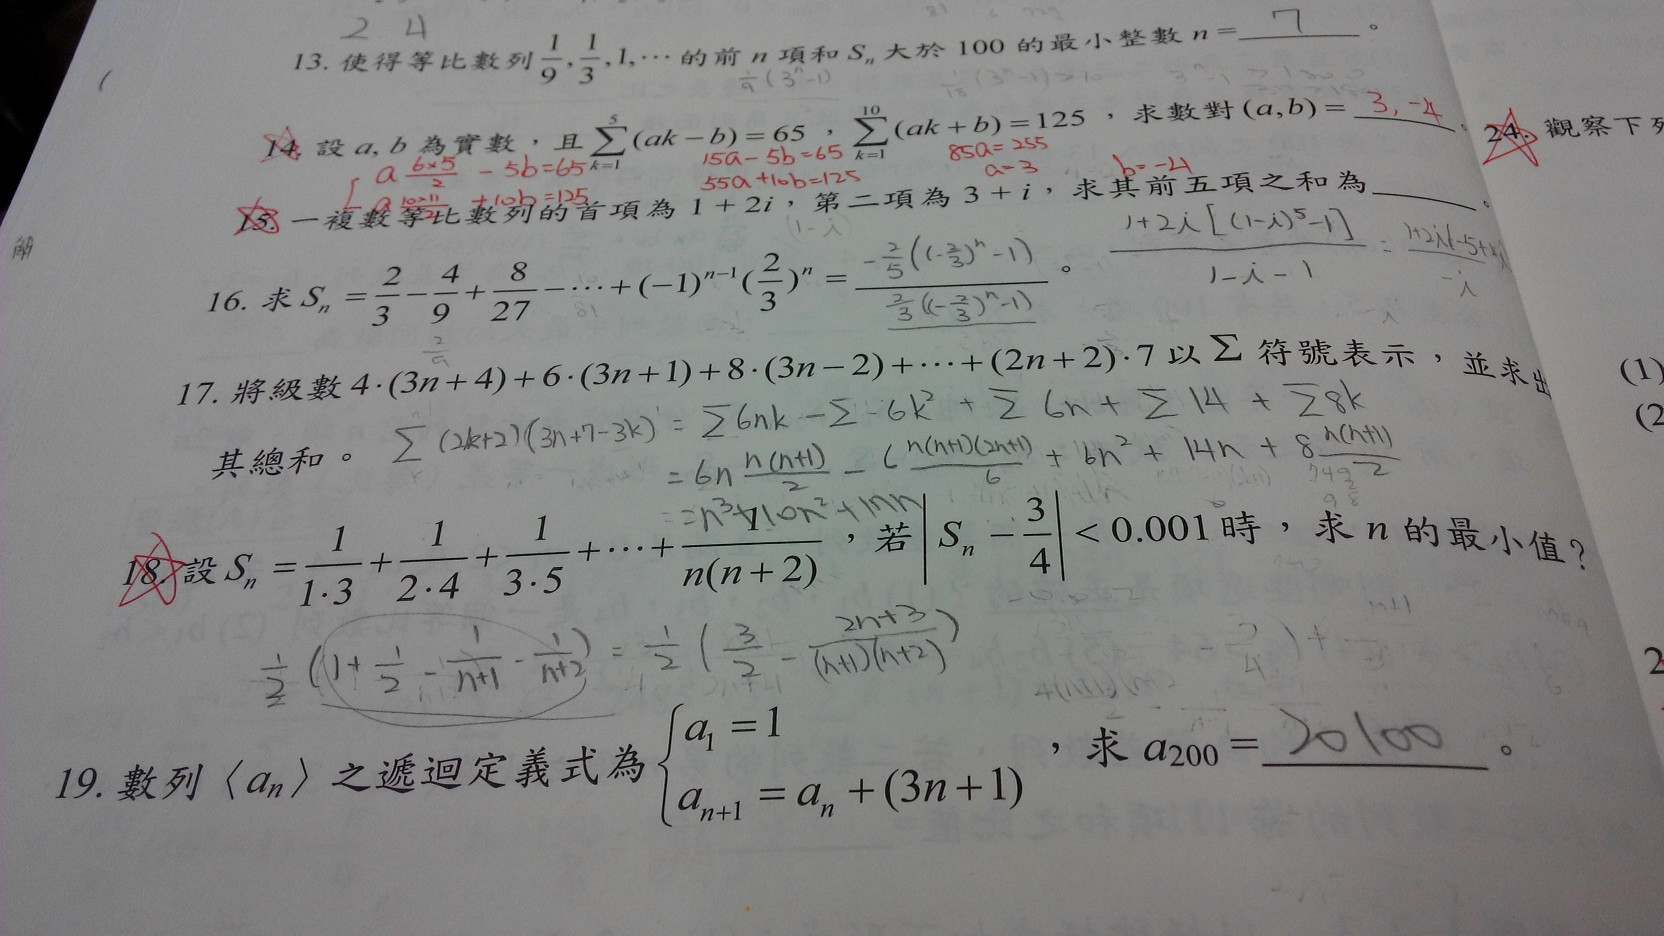 2 4
13. 使得等比數列 1/9, 1/3, 1, ⋯ 的前 n 項和 Sₙ 大於 100 的最小整數 n = 7 。
14. 設 a, b 為實數，且 ∑_{k=1}^{5} (ak − b) = 65，∑_{k=1}^{10} (ak + b) = 125，求數對 (a, b) = 3, -4 .
a 6×5/2 - 5b = 65 15a - 5b = 65 85a = 255
a 10×11/2 + 10b = 125 55a + 10b = 125 a = 3 b = -4
15. 一複數等比數列的首項為 1 + 2i，第二項為 3 + i，求其前五項之和為 。
(1-i) 1+2i[(1-i)⁵-1] / 1-i-1 =
16. 求 Sₙ = 2/3 − 4/9 + 8/27 − ⋯ + (−1)ⁿ⁻¹(2/3)ⁿ = -2/5((-2/3)ⁿ-1) 。
2/3((-2/3)ⁿ-1)
17. 將級數 4·(3n + 4) + 6·(3n + 1) + 8·(3n − 2) + ⋯ + (2n + 2)·7 以 ∑ 符號表示，並求出
其總和。 ∑ (2k+2)(3n+7-3k) = ∑6nk - ∑-6k² + ∑6n + ∑14 + ∑8k
= 6n n(n+1)/2 - 6 n(n+1)(2n+1)/6 + 6n² + 14n + 8 n(n+1)/2
18. 設 Sₙ = 1/(1·3) + 1/(2·4) + 1/(3·5) + ⋯ + 1/(n(n + 2))，若 |Sₙ − 3/4| < 0.001 時，求 n 的最小值？
1/2 (1 + 1/2 - 1/(n+1) - 1/(n+2)) = 1/2 (3/2 - (2n+3)/((n+1)(n+2)))
19. 數列〈aₙ〉之遞迴定義式為 { a₁ = 1
aₙ₊₁ = aₙ + (3n + 1) ，求 a₂₀₀ = 20100 。
24. 觀察下列
(1)
(2